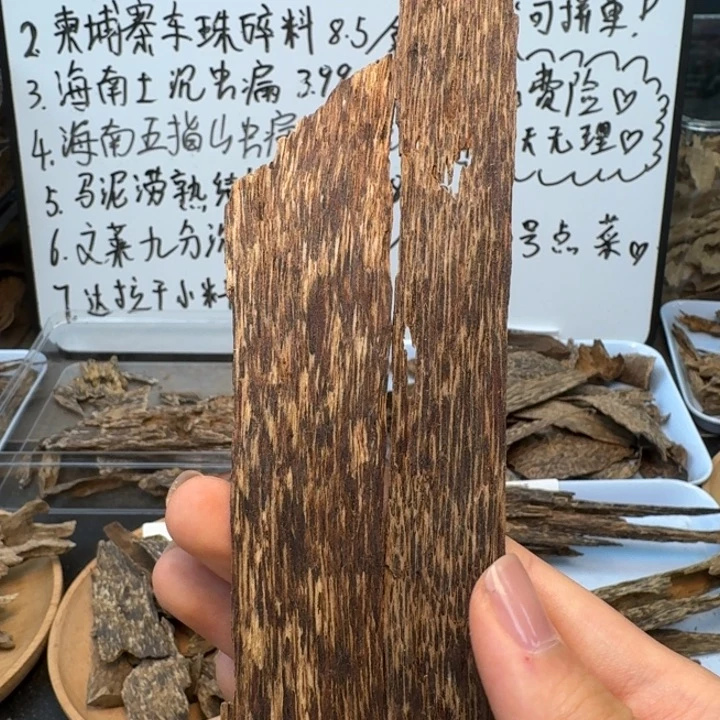 2. 柬埔寨车珠碎料 8.5/
可拼单!
3. 海南土沉虫漏 3.99
费险♡
4. 海南五指山虫漏
天无理♡
5. 马泥涝熟
6. 文莱九分沉
号点菜♡
7 达拉干小料